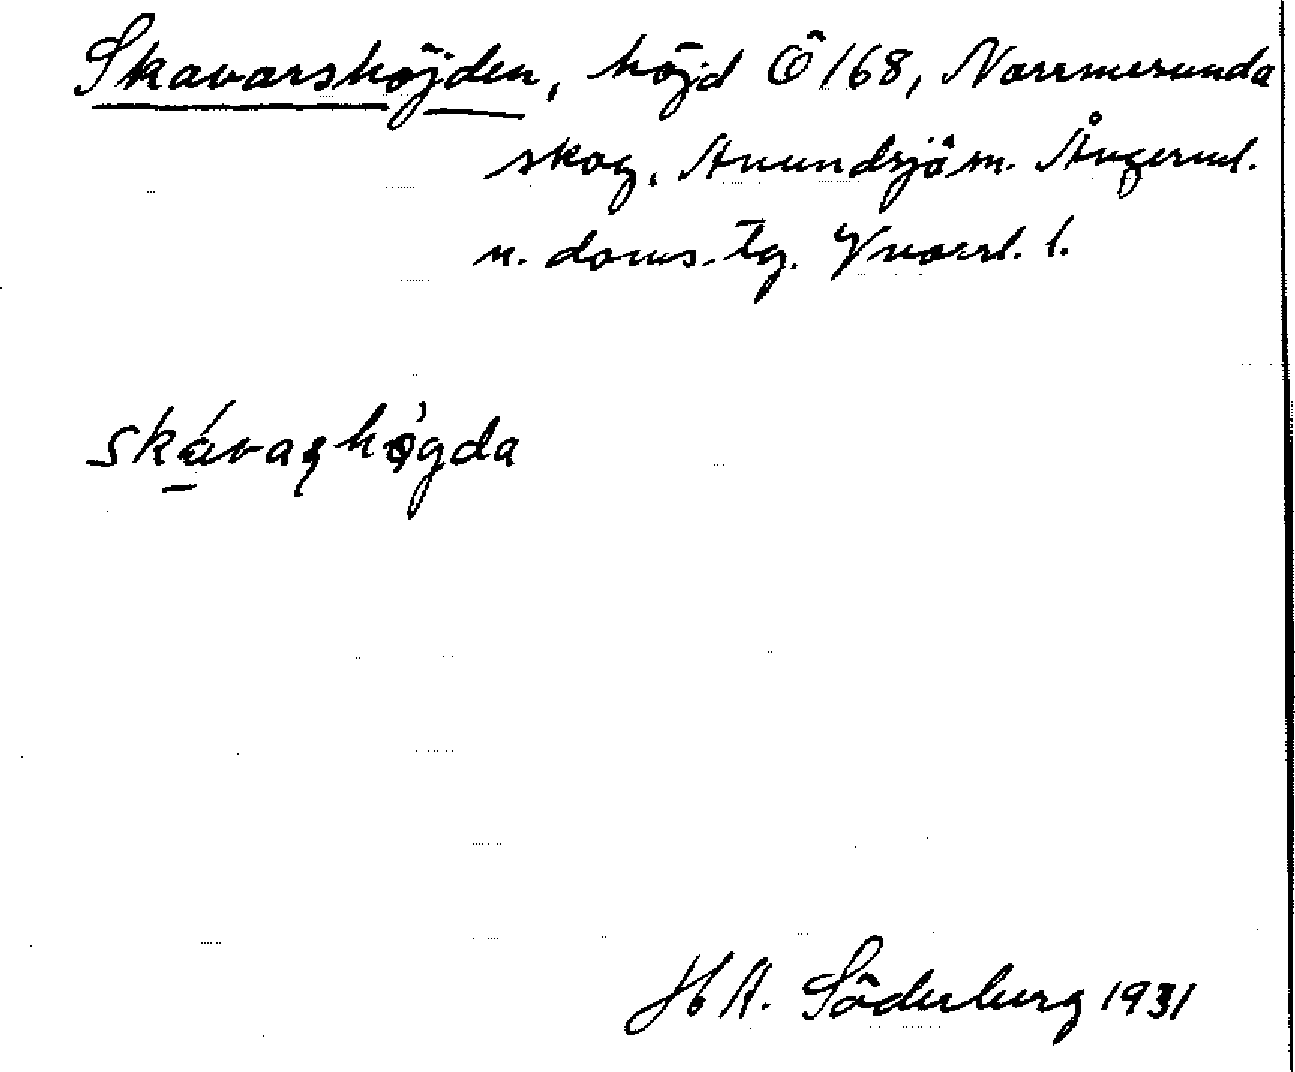 Skavarshöjden, höjd Ö 168, Norrmesunda
skog, Anundsjö sn. Ångerml.
n. doms. tg. Vnorrl. l.
skávaʂhǿgda
H A. Söderberg 1931